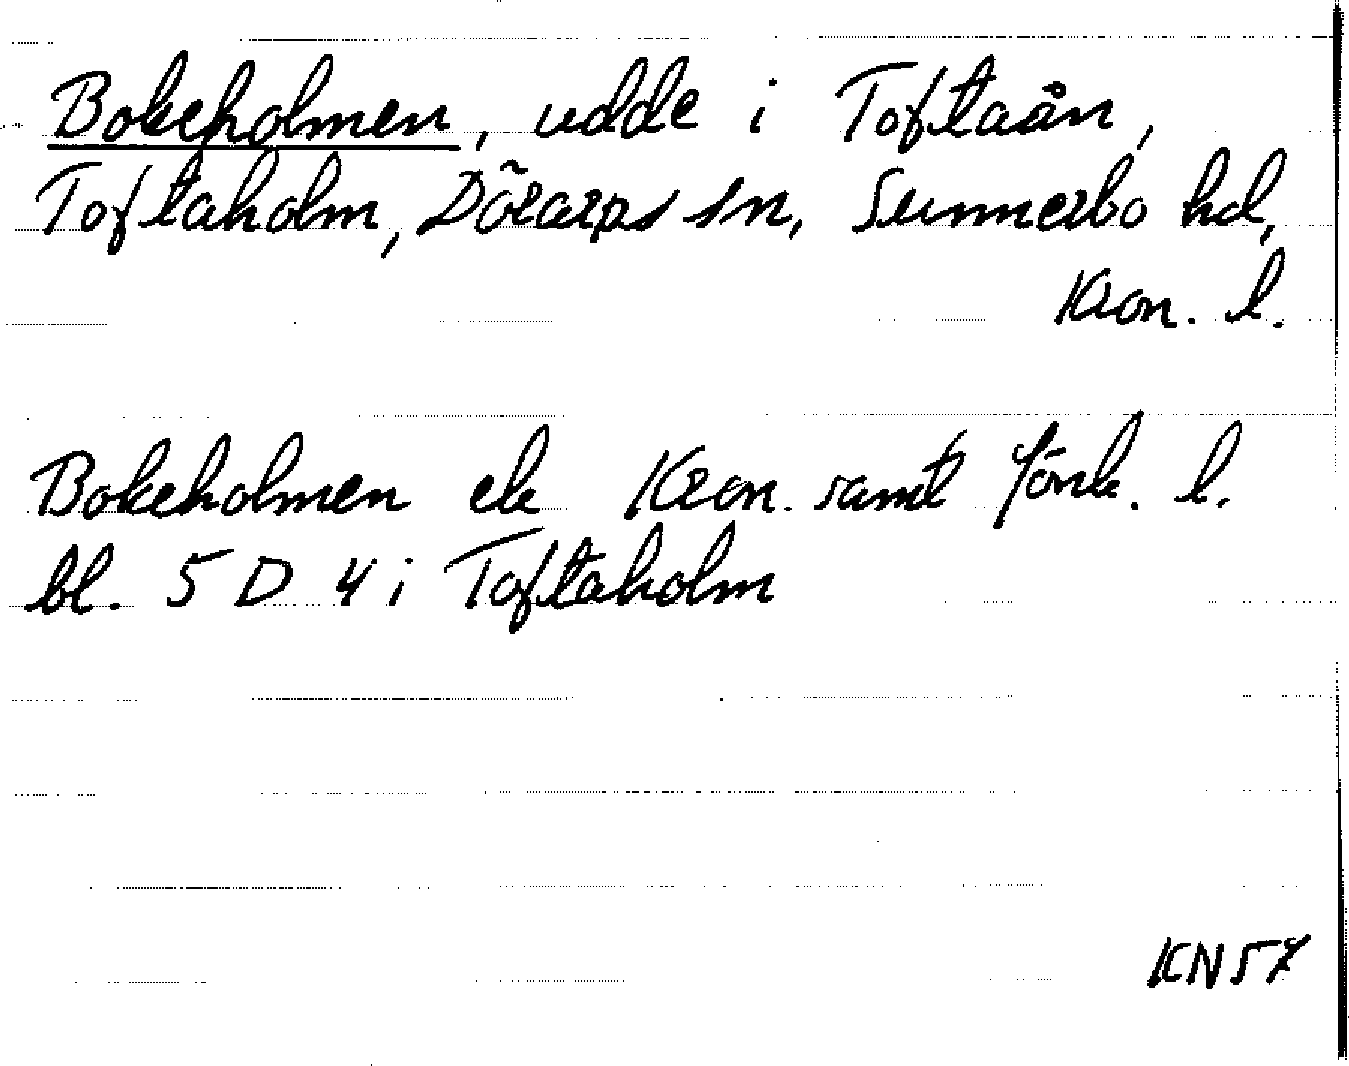 Bokeholmen, udde i Toftaån,
Toftaholm, Dörarps sn, Sunnerbo hd,
Kron. l.
Bokeholmen ek Kron. samt Jönk. l.
bl. 5 D 4 i Toftaholm
KN57